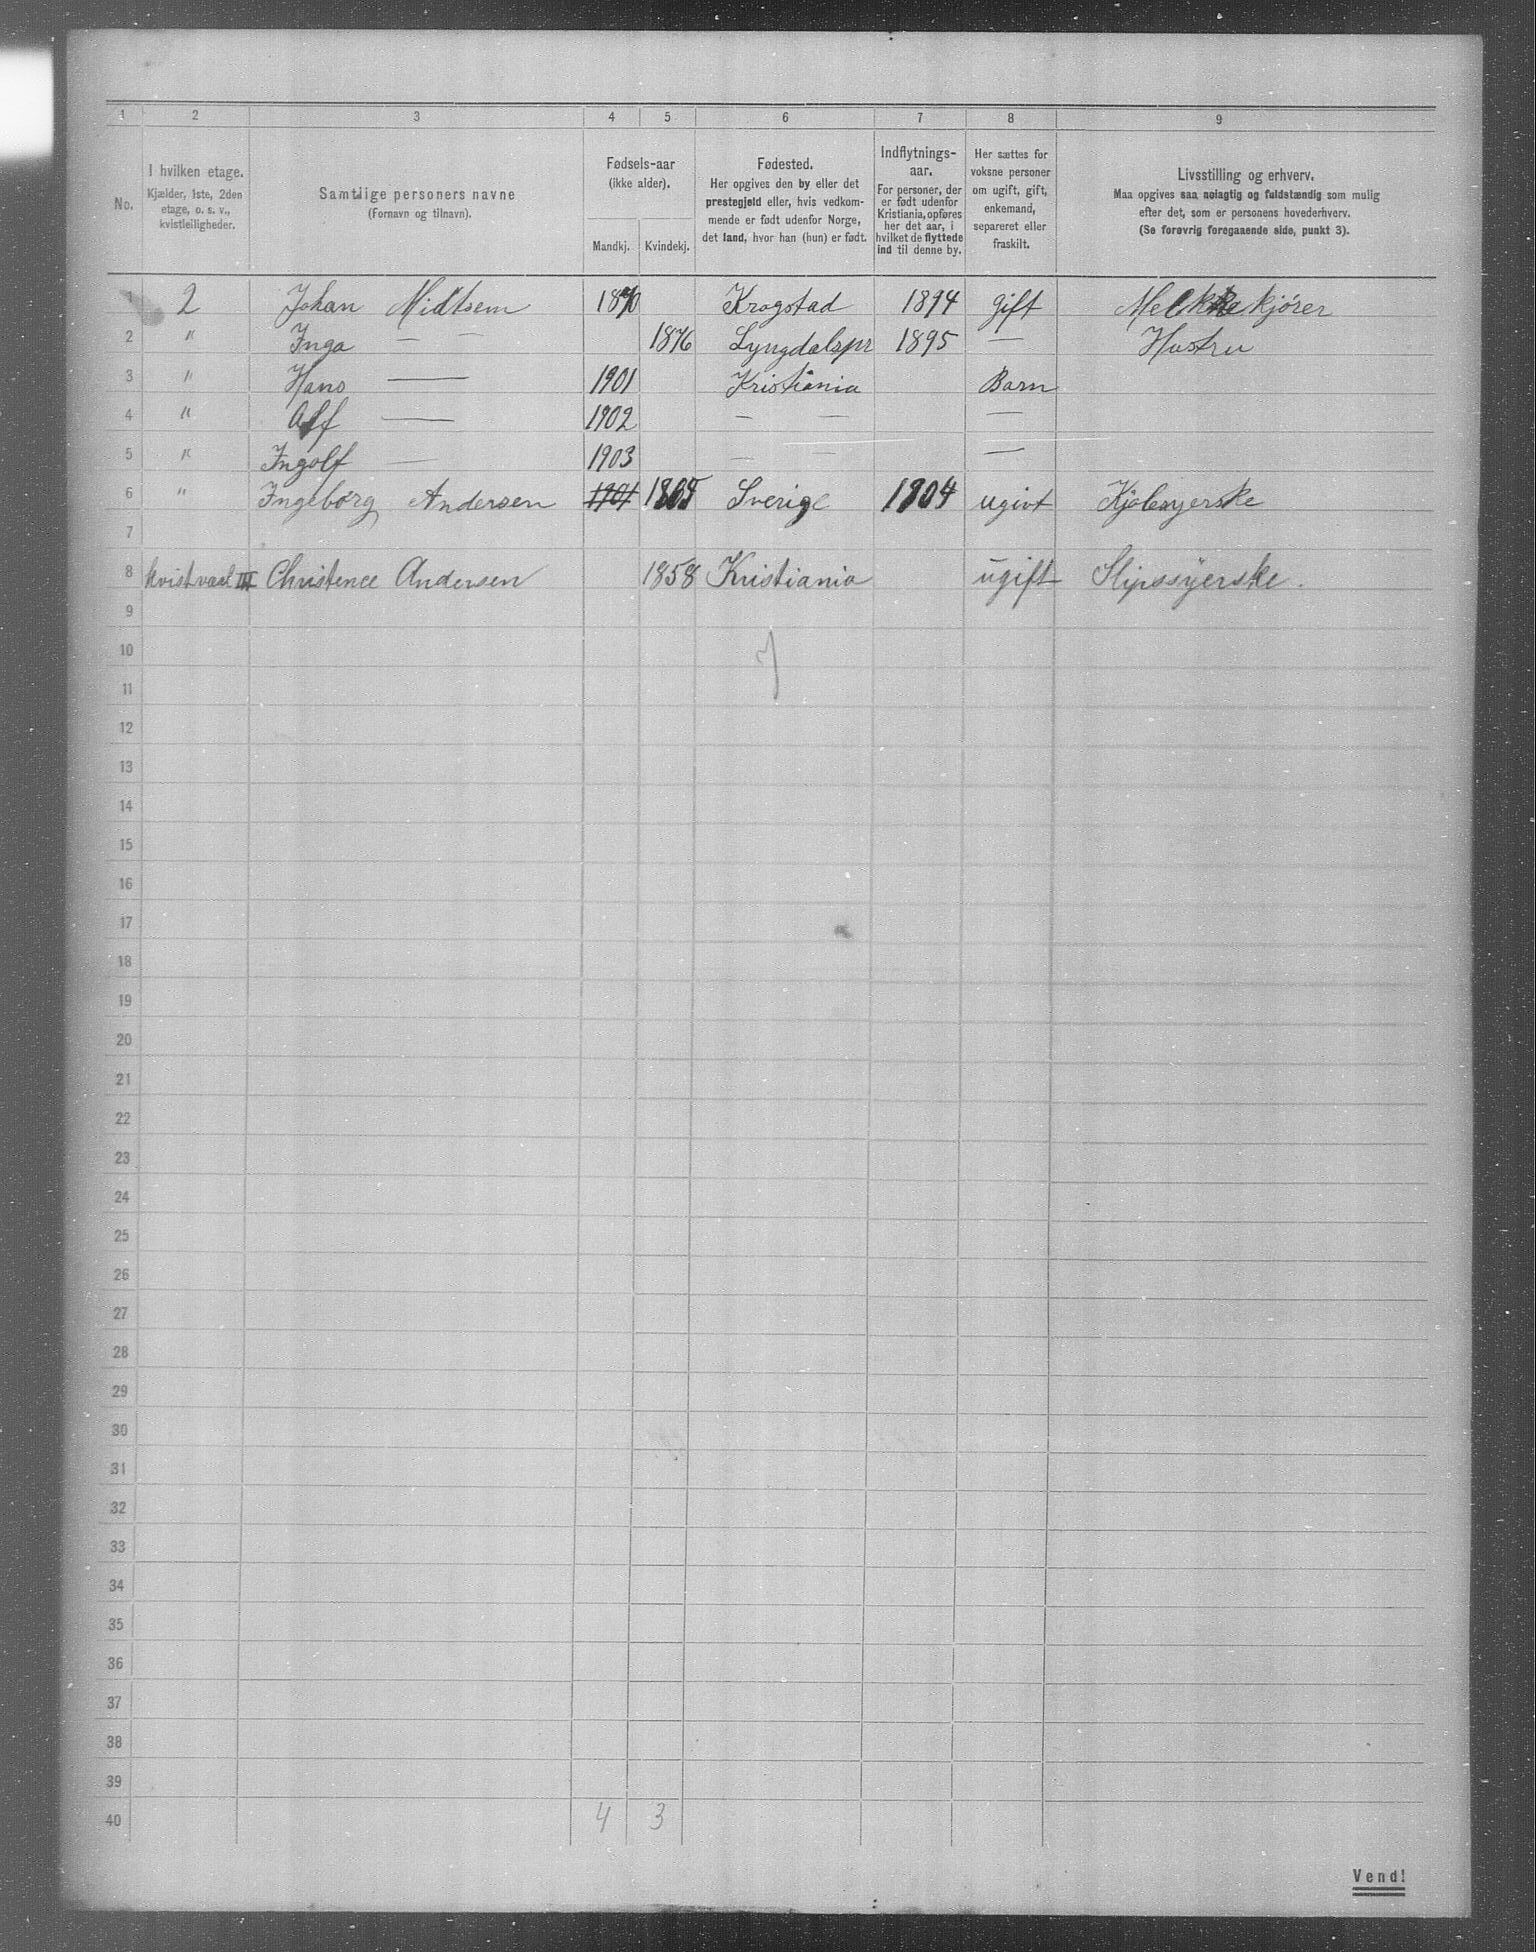 1 2 3 4 5 6 7 8 9
No.
I hvilken etage.
Kjælder, 1ste, 2den
etage, o. s. v.,
kvistleiligheder.
Samtlige personers navne
(Fornavn og tilnavn).
Fødsels-aar
(ikke alder).
Mandkj. Kvindekj.
Fødested.
Her opgives den by eller det
prestegjeld eller, hvis vedkom-
mende er født udenfor Norge,
det land, hvor han (hun) er født.
Indflytnings-
aar.
For personer, der
er født udenfor
Kristiania, opføres
her det aar, i
hvilket de flyttede
ind til denne by.
Her sættes for
voksne personer
om ugift, gift,
enkemand,
separeret eller
fraskilt.
Livsstilling og erhverv.
Maa opgives saa nøiagtig og fuldstændig som mulig
efter det, som er personens hovederhverv.
(Se forøvrig foregaaende side, punkt 3).
1 2 Johan Midtsem 1870 Krogstad 1894 gift Melkekjører
2 " Inga — 1876 Lyngdalspr 1895 — Hustru
3 " Hans — 1901 Kristiania Barn
4 " Alf — 1902 — — —
5 " Ingolf — 1903 — — —
6 " Ingeborg Andersen 1901 Sverige 1904 ugivt Kjolesyerske
7
8 III Christence Andersen 1858 Kristiania ugift Slipssyerske.
9
10
11
12
13
14
15
16
17
18
19
20
21
22
23
24
25
26
27
28
29
30
31
32
33
34
35
36
37
38
39
40 4 3
Vend!